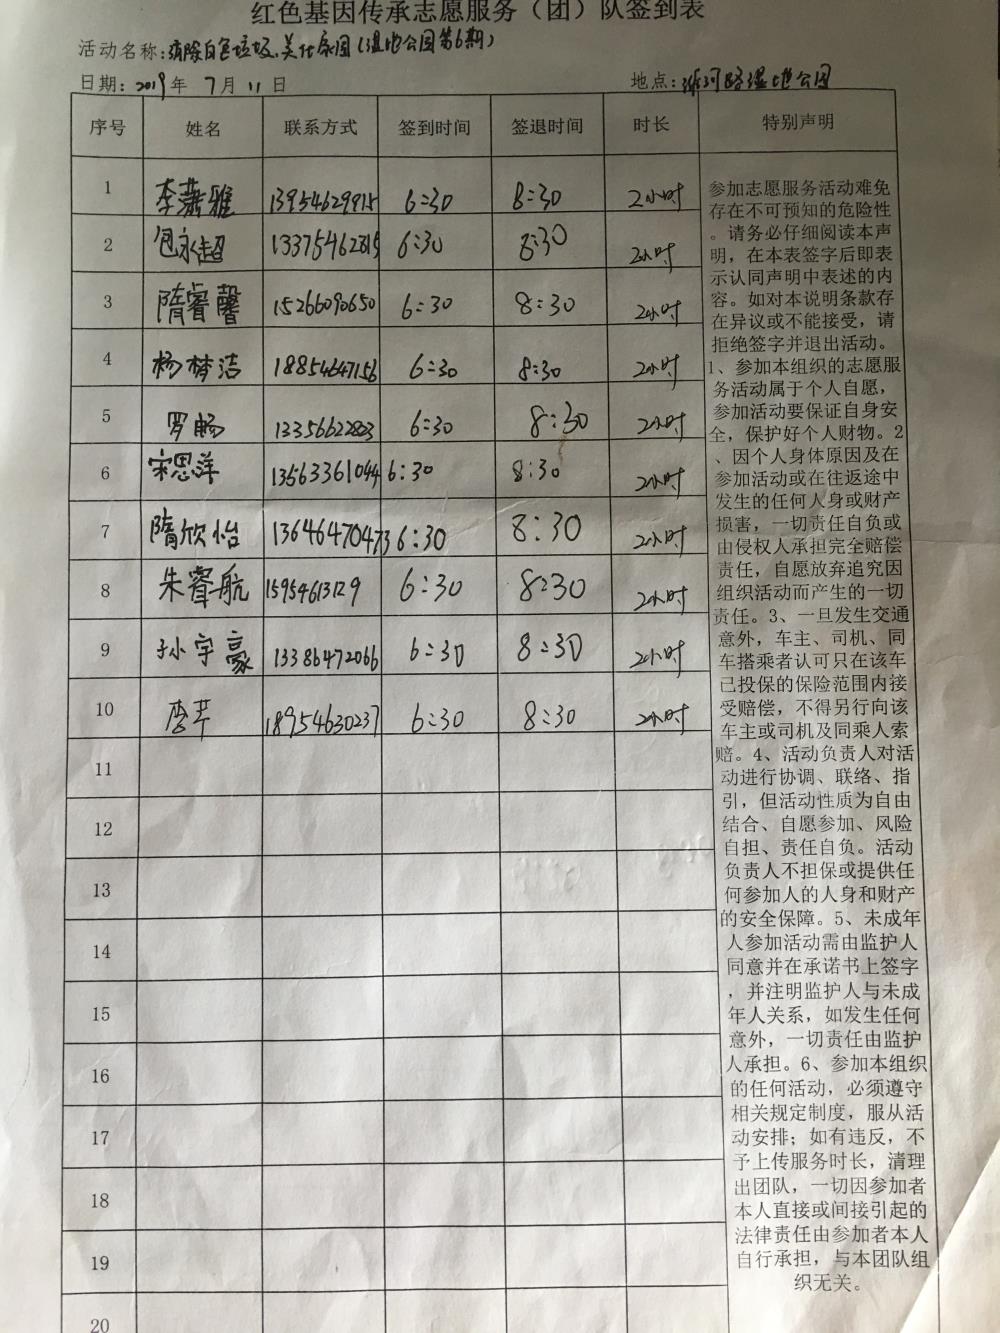 红色基因传承志愿服务（团）队签到表
活动名称：清除白色垃圾、美化家园（湿地公园第6期）
日期：2019年 7月 11日 地点：湿地公园
序号 姓名 联系方式 签到时间 签退时间 时长 特别声明
1 李潇雅 13954629915 6:30 8:30 2小时
2 包永超 13375462815 6:30 8:30 2小时
3 隋睿馨 15266090650 6:30 8:30 2小时
4 杨梦洁 18854647156 6:30 8:30 2小时
5 罗畅 13356622823 6:30 8:30 2小时
6 宋思洋 13563361044 6:30 8:30 2小时
7 隋欣怡 13646470473 6:30 8:30 2小时
8 朱睿航 15954613129 6:30 8:30 2小时
9 孙宇豪 13386472066 6:30 8:30 2小时
10 18954630237 6:30 8:30 2小时
11
12
13
14
15
16
17
18
19
20
参加志愿服务活动难免
存在不可预知的危险性
。请务必仔细阅读本声
明，在本表签字后即表
示认同声明中表述的内
容。如对本说明条款存
在异议或不能接受，请
拒绝签字并退出活动。
1、参加本组织的志愿服
务活动属于个人自愿，
参加活动要保证自身安
全，保护好个人财物。2
、因个人身体原因及在
参加活动或在往返途中
发生的任何人身或财产
损害，一切责任自负或
由侵权人承担完全赔偿
责任，自愿放弃追究因
组织活动而产生的一切
责任。3、一旦发生交通
意外，车主、司机、同
车搭乘者认可只在该车
已投保的保险范围内接
受赔偿，不得另行向该
车主或司机及同乘人索
赔。4、活动负责人对活
动进行协调、联络、指
引，但活动性质为自由
结合、自愿参加、风险
自担、责任自负。活动
负责人不担保或提供任
何参加人的人身和财产
的安全保障。5、未成年
人参加活动需由监护人
同意并在承诺书上签字
，并注明监护人与未成
年人关系，如发生任何
意外，一切责任由监护
人承担。6、参加本组织
的任何活动，必须遵守
相关规定制度，服从活
动安排；如有违反，不
予上传服务时长，清理
出团队，一切因参加者
本人直接或间接引起的
法律责任由参加者本人
自行承担，与本团队组
织无关。